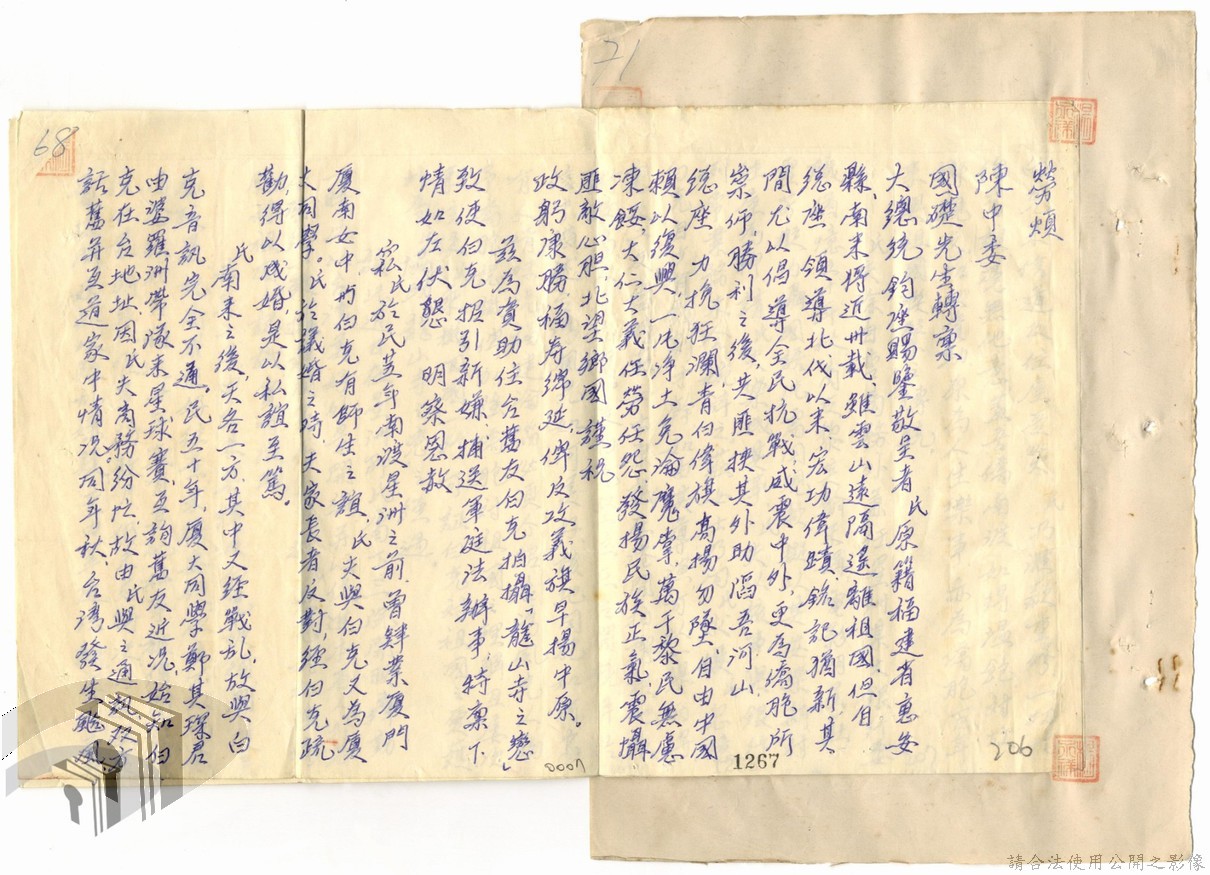 勞煩
陳中委
國礎先生轉稟
大總統鈞座賜鑒敬呈者民原籍福建省惠安
縣,南來將近卅載,雖雲山遠隔遙離祖國,但自
總座領導北伐以來,宏功偉蹟,銘記猶新,其
間尤以倡導全民抗戰,威震中外,更為僑胞所
崇仰,勝利之後,共匪挾其外助滔吾河山
總座力挽狂瀾,青白偉旗高揚勿墜,自由中國
賴以復興,一片淨土免淪魔掌,萬千黎民無慮
凍餒,大仁大義任勞任怨,發揚民族正氣,震攝
匪敵心胆,北望鄉國謹祝
政躬康勝福壽綿延,俾反攻義旗早揚中原。
茲為資助住台舊友白克拍攝「龍山寺之戀」
致使白克招引新嫌,捕送軍庭法辦事,特稟下
情如左伏懇 明察恩赦
竊民於民 年南渡星洲之前,曾肄業廈門
廈南女中,與白克有師生之誼,民夫與白克又為廈
大同學。民於議婚之時,夫家長者反對,經白克疏
勸,得以成婚,是以私誼至篤。
民南來之後,天各一方,其中又經戰亂,故與白
克音訊完全不通,民五十年,廈大同學鄭其琛君
由婆羅洲帶隊來星球賽,互詢舊友近況,始知白
克在台地址,因民夫商務紛忙,故由民與之通訊,双方
話舊并互道家中情況,同年秋,台灣發生颱風
68
21
206
1267
0007
請合法使用公開之影像